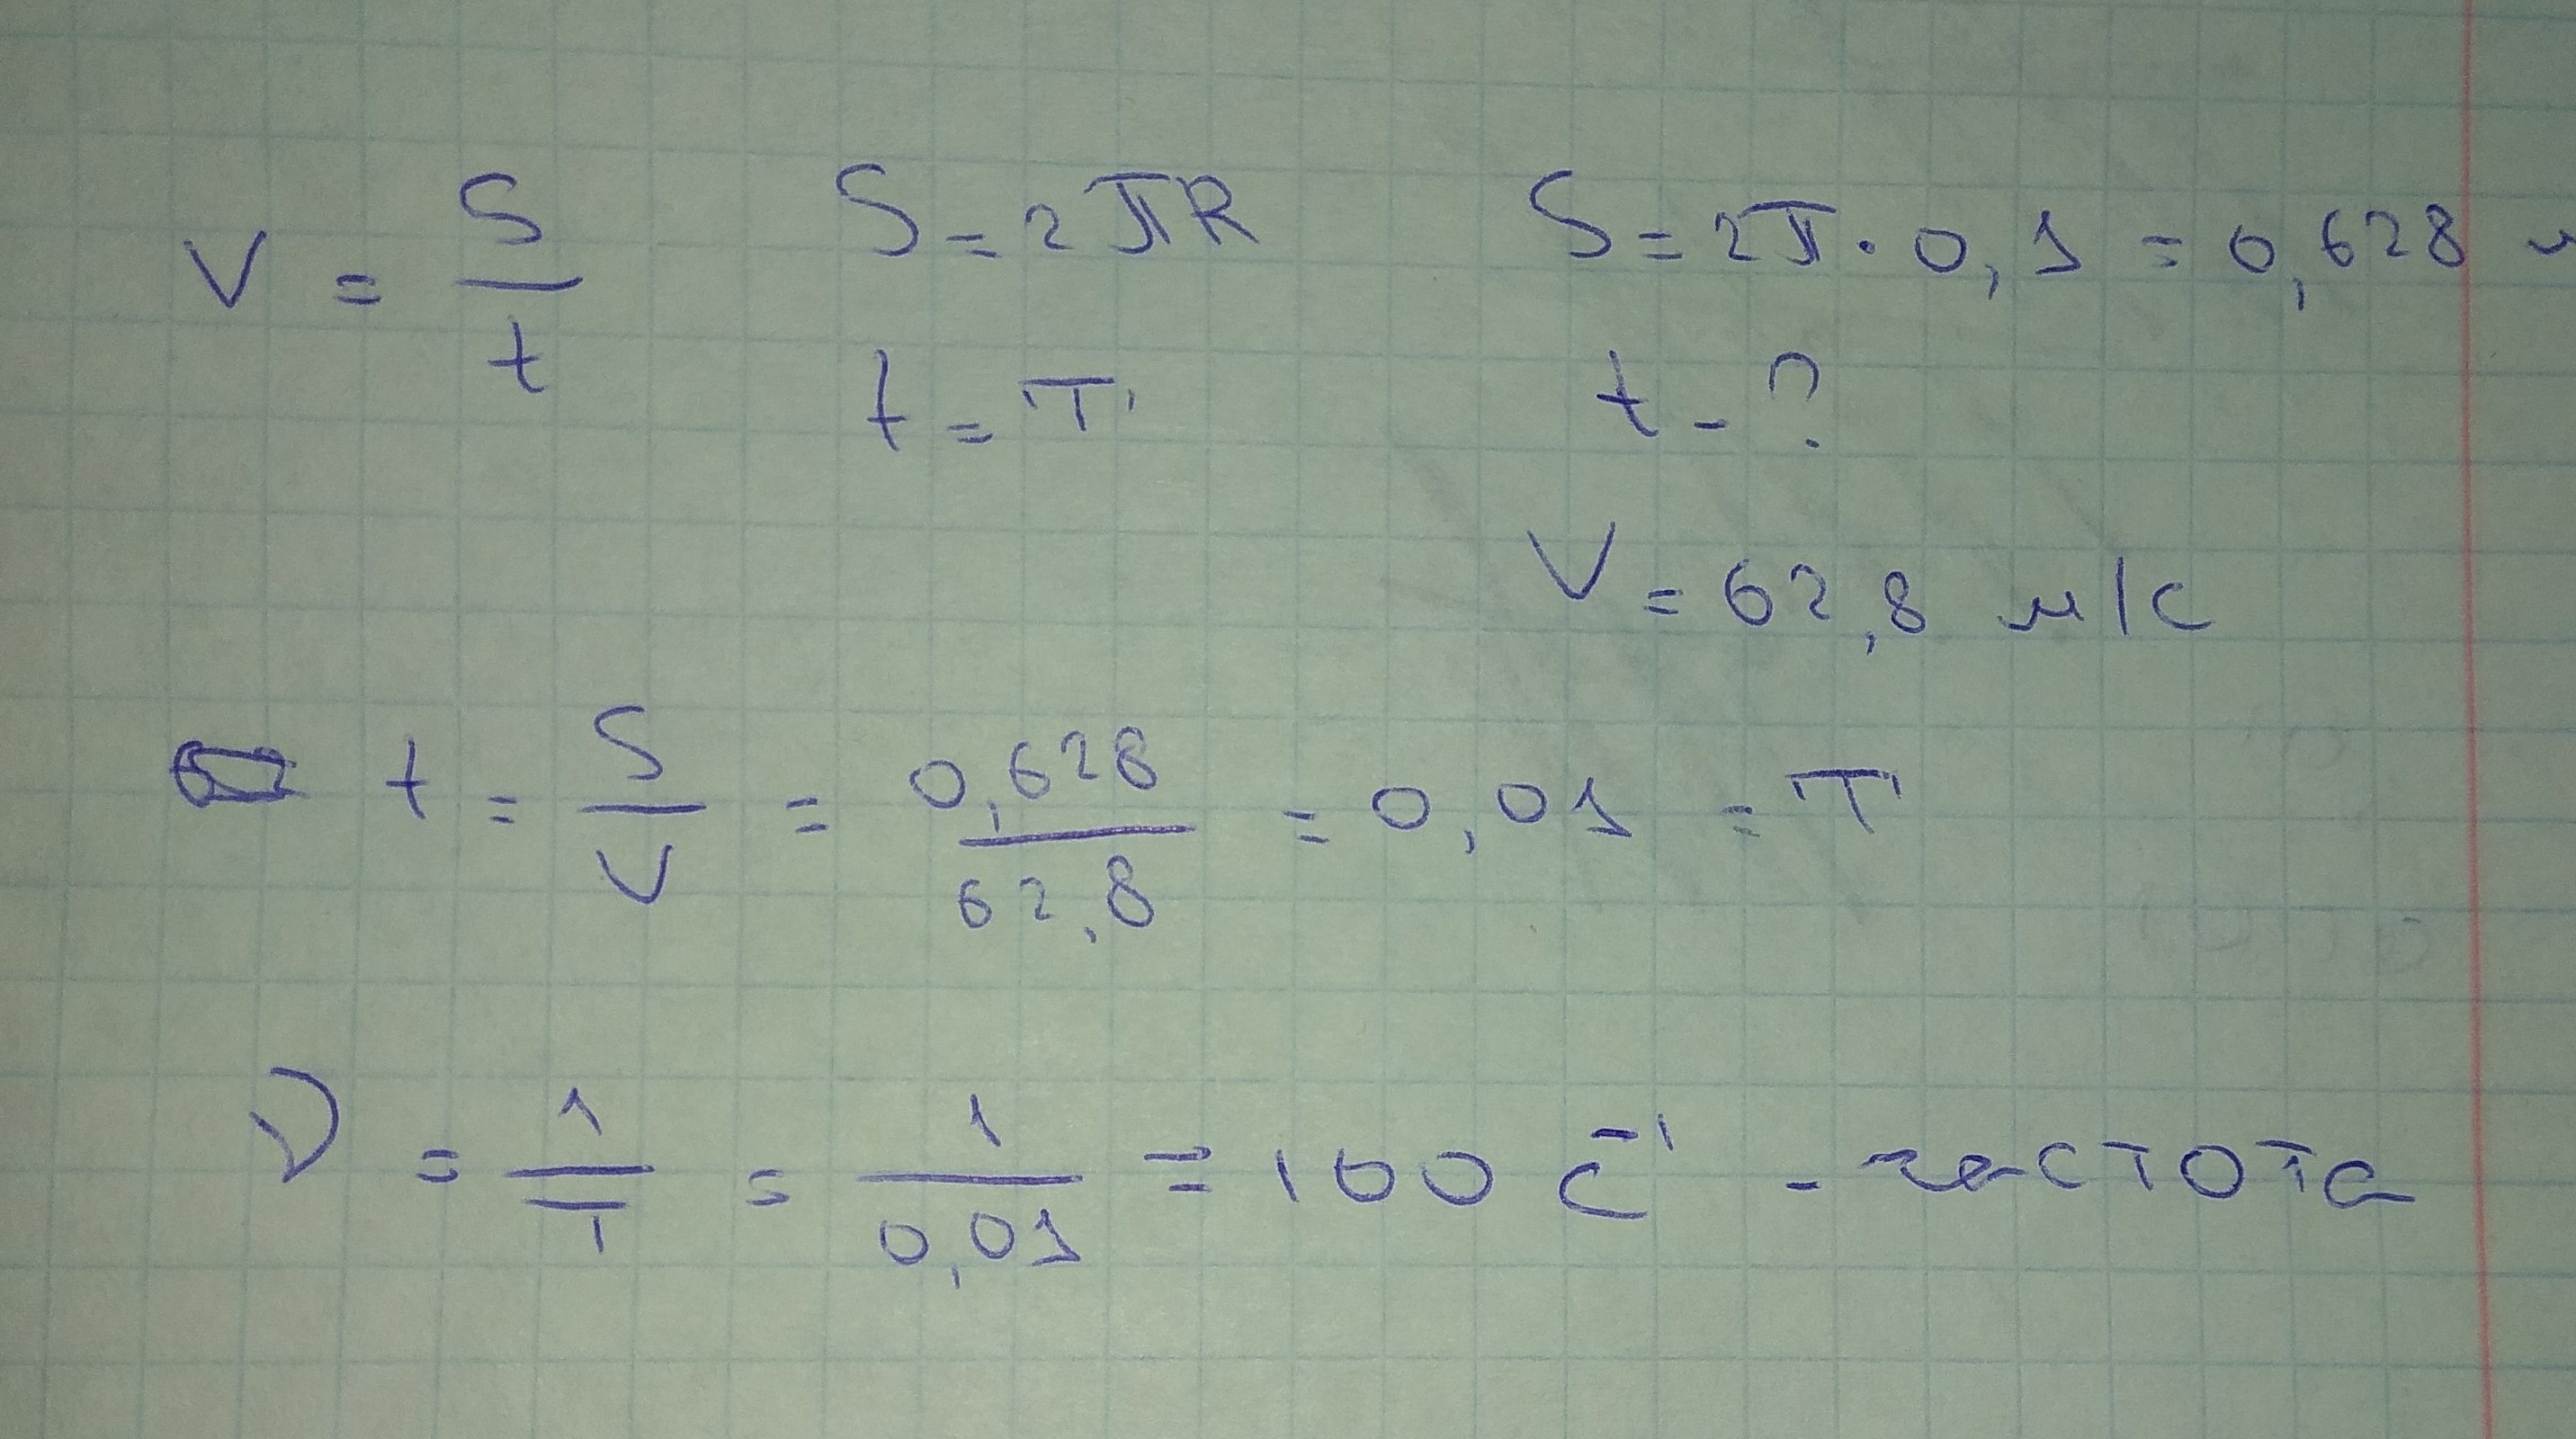 V = S/t S = 2πR S = 2π · 0,1 = 0,628 м
t = T t - ?
V = 62,8 м/с
t = S/V = 0,628/62,8 = 0,01 = T
ν = 1/T = 1/0,01 = 100 с⁻¹ - частота